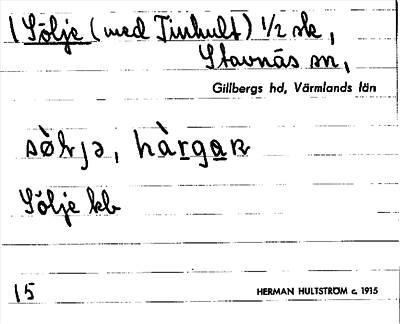 1 Sölje (med Tinhult) 1/2 sk,
Stavnäs sn,
Gillbergs hd, Värmlands län
hàrgaʀ
Sölje kb
15
HERMAN HULTSTRÖM c. 1915